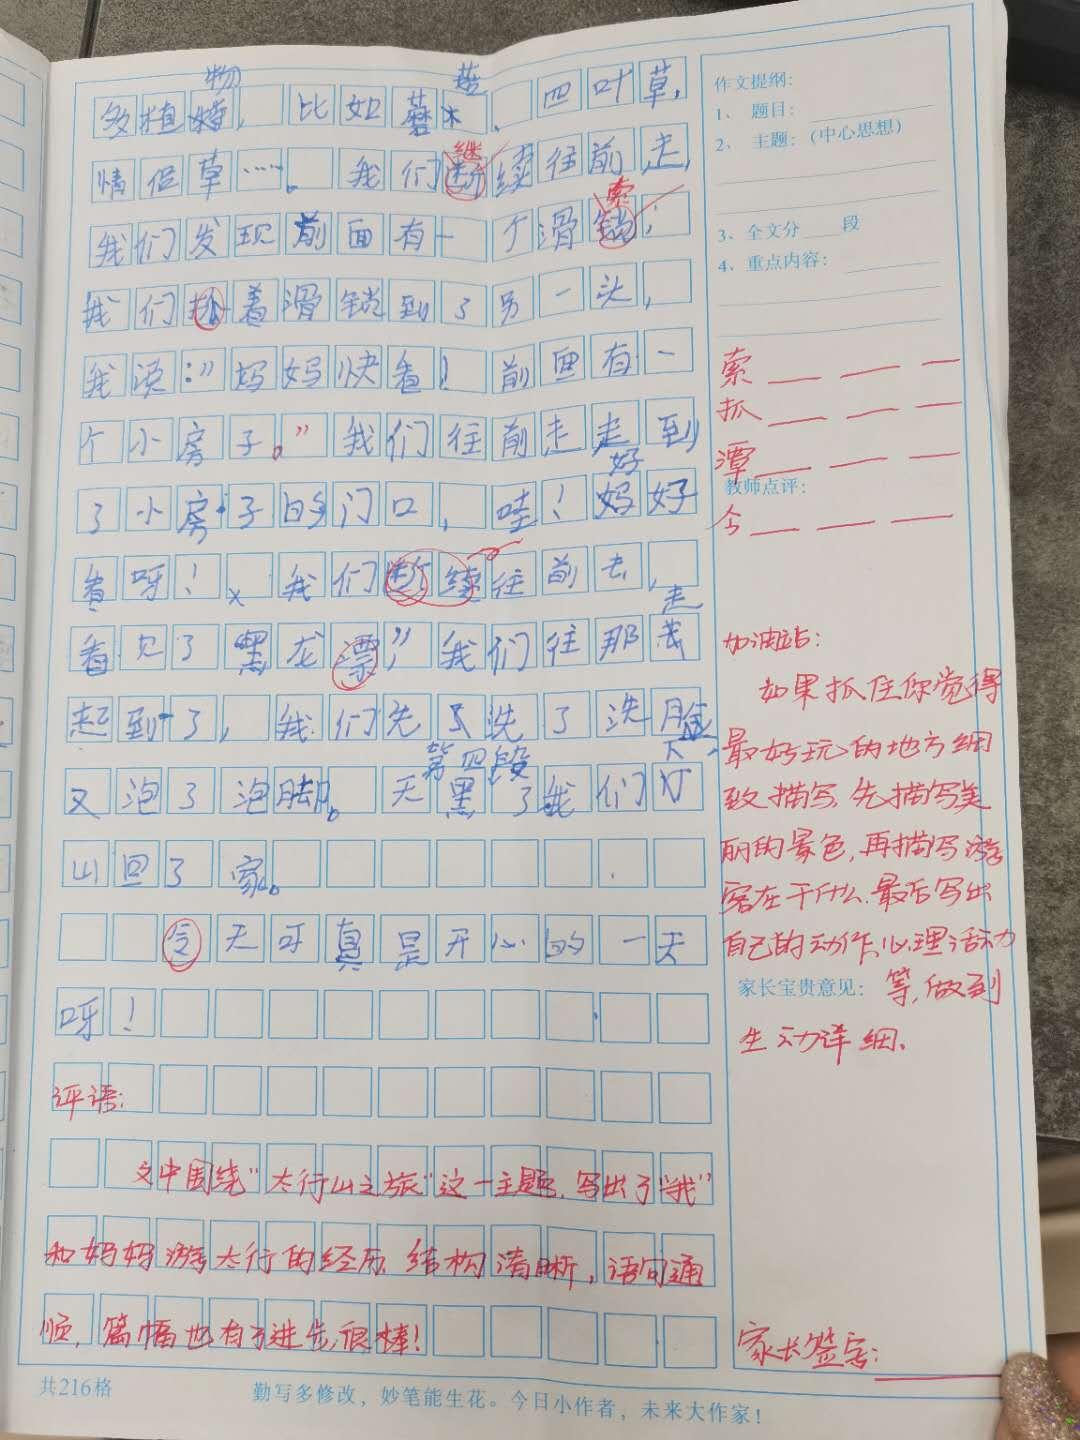 物
多植 比如蘑菇、四叶草,
情侣草……。我们继续往前走,
我们发现前面有一个滑索,
我们抓着滑锁到了另一头,
我说:"妈妈快看!前面有一
个小房子。"我们往前走走到
好
了小房子的门口,哇!妈好
看呀!我们断续往前去,
走
看见了黑龙漂,我们往那
起到了,我们先了洗了洗脸,
第四段
又泡了泡脚。天黑了我们下
山回了家。
今天可真是开心的一天
呀!
评语:
文中围绕"太行山之旅"这一主题,写出了"我"
和妈妈游太行的经历,结构清晰,语句通
顺,篇幅也有了进步,很棒!
共216格
勤写多修改,妙笔能生花。今日小作者,未来大作家!
作文提纲:
1、题目:
2、主题:(中心思想)
3、全文分 段
4、重点内容:
索
抓
潭
教师点评:
今
加油站:
如果抓住你觉得
最好玩的地方细
致描写,先描写美
丽的景色,再描写游
客在干什么,最后写出
自己的动作、心理活动
家长宝贵意见: 等,做到
生动详细、
家长签字: